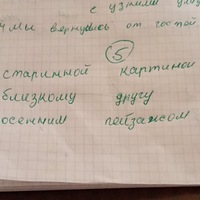 с узкими улиц
Мы вернулись от гостей
5
старинной картиной
близкому другу
осенним пейзажом